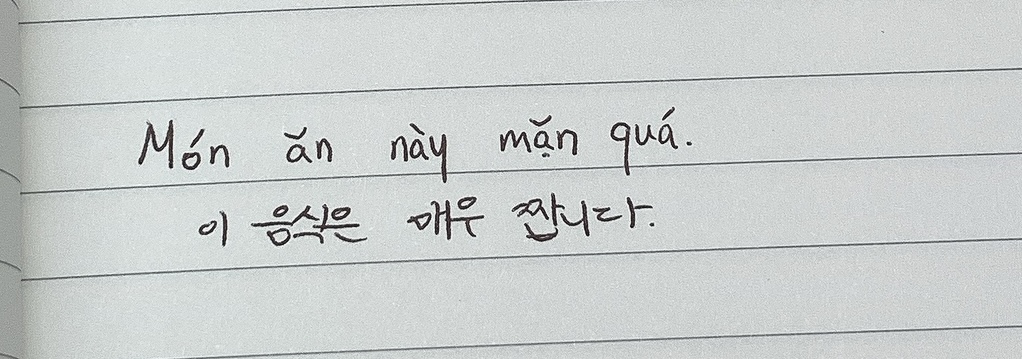 Món ăn này mặn quá.
이 음식은 매우 짭니다.